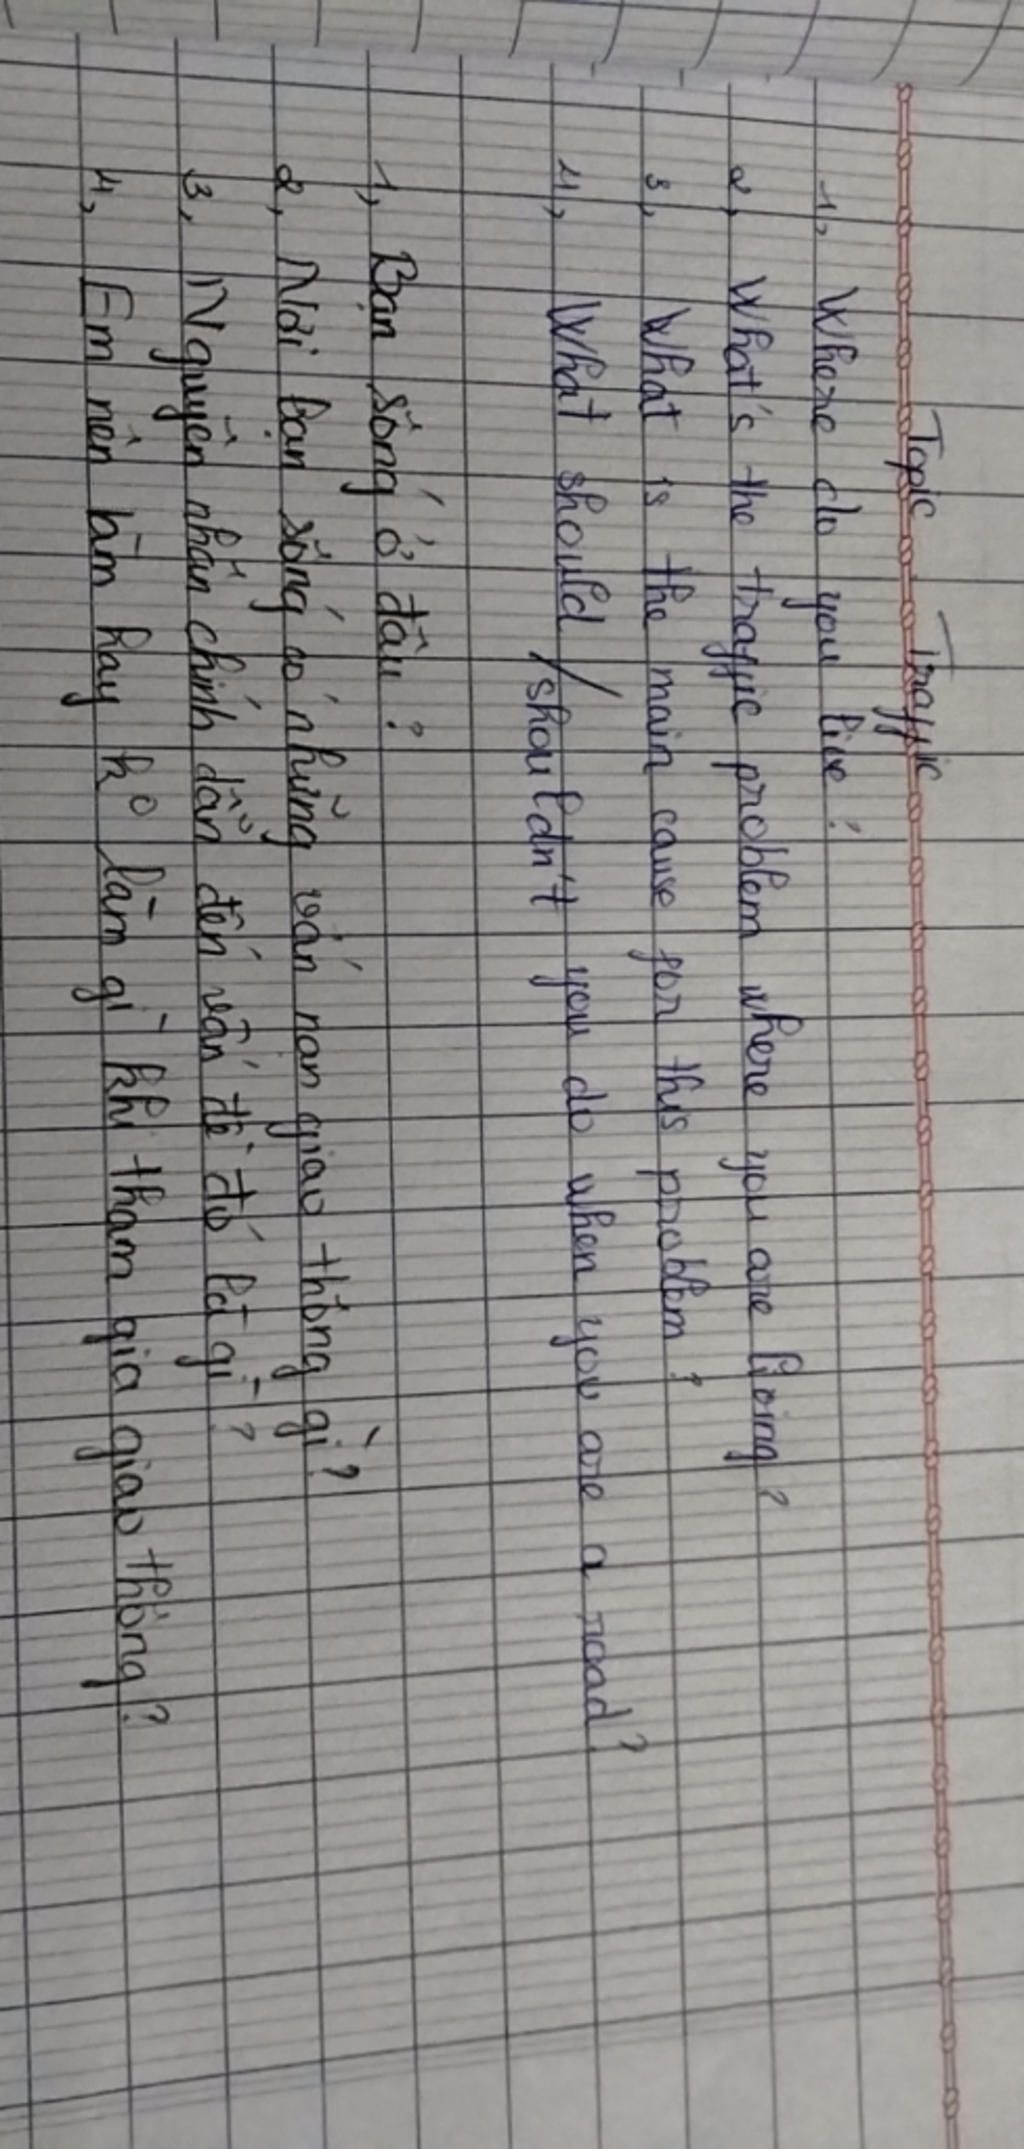 Topic Traffic
1, Where do you live?
2, What's the traffic problem where you are living?
3, What is the main cause for this problem?
4, What should / shouldn't you do when you are a road?
1, Bạn sống ở đâu?
2, Nơi bạn sống có những vấn nạn giao thông gì?
3, Nguyên nhân chính dẫn đến vấn đề đó là gì?
4, Em nên làm hay ko làm gì khi tham gia giao thông?